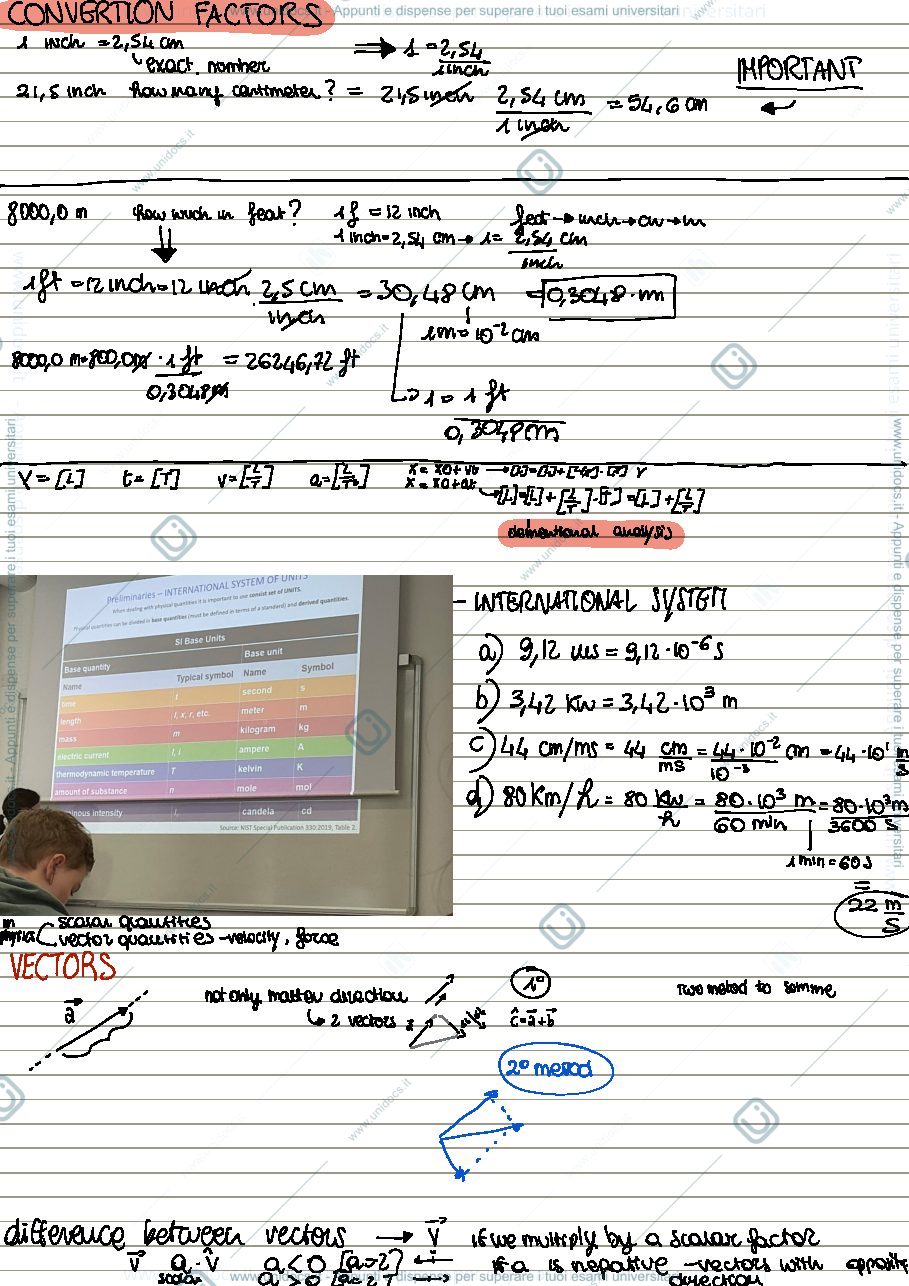 CONVERTION FACTORS
www.unidocs.it - Appunti e dispense per superare i tuoi esami universitari
1 inch = 2,54 cm ⟹ 1 = 2,54 / 1 inch
exact number
IMPORTANT
21,5 inch how many centimeter? = 21,5 inch 2,54 cm / 1 inch = 54,6 cm
8000,0 m how much in feat? 1 f = 12 inch feet → inch → cm → m
1 inch = 2,54 cm → 1 = 2,54 cm / inch
1 ft = 12 inch = 12 inch . 2,5 cm / inch = 30,48 cm = 0,3048 · m
1 m = 10⁻² cm
8000,0 m = 800,0 m · 1 ft / 0,3048 m = 26246,72 ft
↳ 1 = 1 ft / 0,3048 m
t = [T] v = [L/T]
[L] = [L] + [L/T] · [T] = [L] + [L/T]
analysis
Preliminaries – INTERNATIONAL SYSTEM OF UNITS
When dealing with physical quantities it is important to use consist set of UNITS.
Physical quantities can be divided in base quantities (must be defined in terms of a standard) and derived quantities.
SI Base Units
Base quantity Base unit
Name Typical symbol Name Symbol
time t second s
length l, x, r, etc. meter m
mass m kilogram kg
electric current I, i ampere A
thermodynamic temperature T kelvin K
amount of substance n mole mol
inous intensity candela cd
Source: NIST Special Publication 330:2019, Table 2.
- INTERNATIONAL SYSTEM
a) 9,12 us = 9,12 · 10⁻⁶ s
b) 3,42 Km = 3,42 · 10³ m
c) 44 cm/ms = 44 cm / ms = 44 · 10⁻² / 10⁻³ cm = 44 · 10¹ m/s
d) 80 Km/h = 80 Km / h = 80 · 10³ m / 60 min = 80 · 10³ m / 3600 s
1 min = 60 s
= 22 m/s
in scalar quantities
physics vector quantities - velocity, force
VECTORS
a⃗
not only direction
↳ 2 vectors
1°
c = a + b
Two metod to somme
2° metod
difference between vectors → v⃗ if we multiply by a scalar factor
v⃗ a · v a < 0 if a is negative - vectors with opposite
scalar a > 0 direction